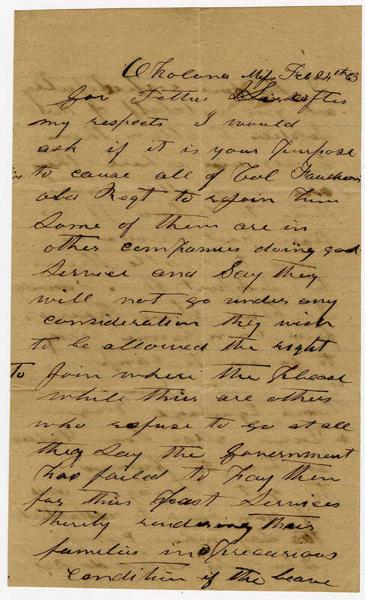 Okolona Mis Feb 24th 63
Gov Pettus Sir after
my respects I would
ask if it is your purpose
to cause all of Col Faulkners
old Regt to rejoin him
Some of them are in
other companies doing good
Service and Say they
will not go under any
consideration they wish
to be allowed the right
To Join where the please
while thier are others
who refuse to go at all
they Say the Government
has failed to pay them
for thier past Services
therby rendering their
families in precarious
condition if the leave